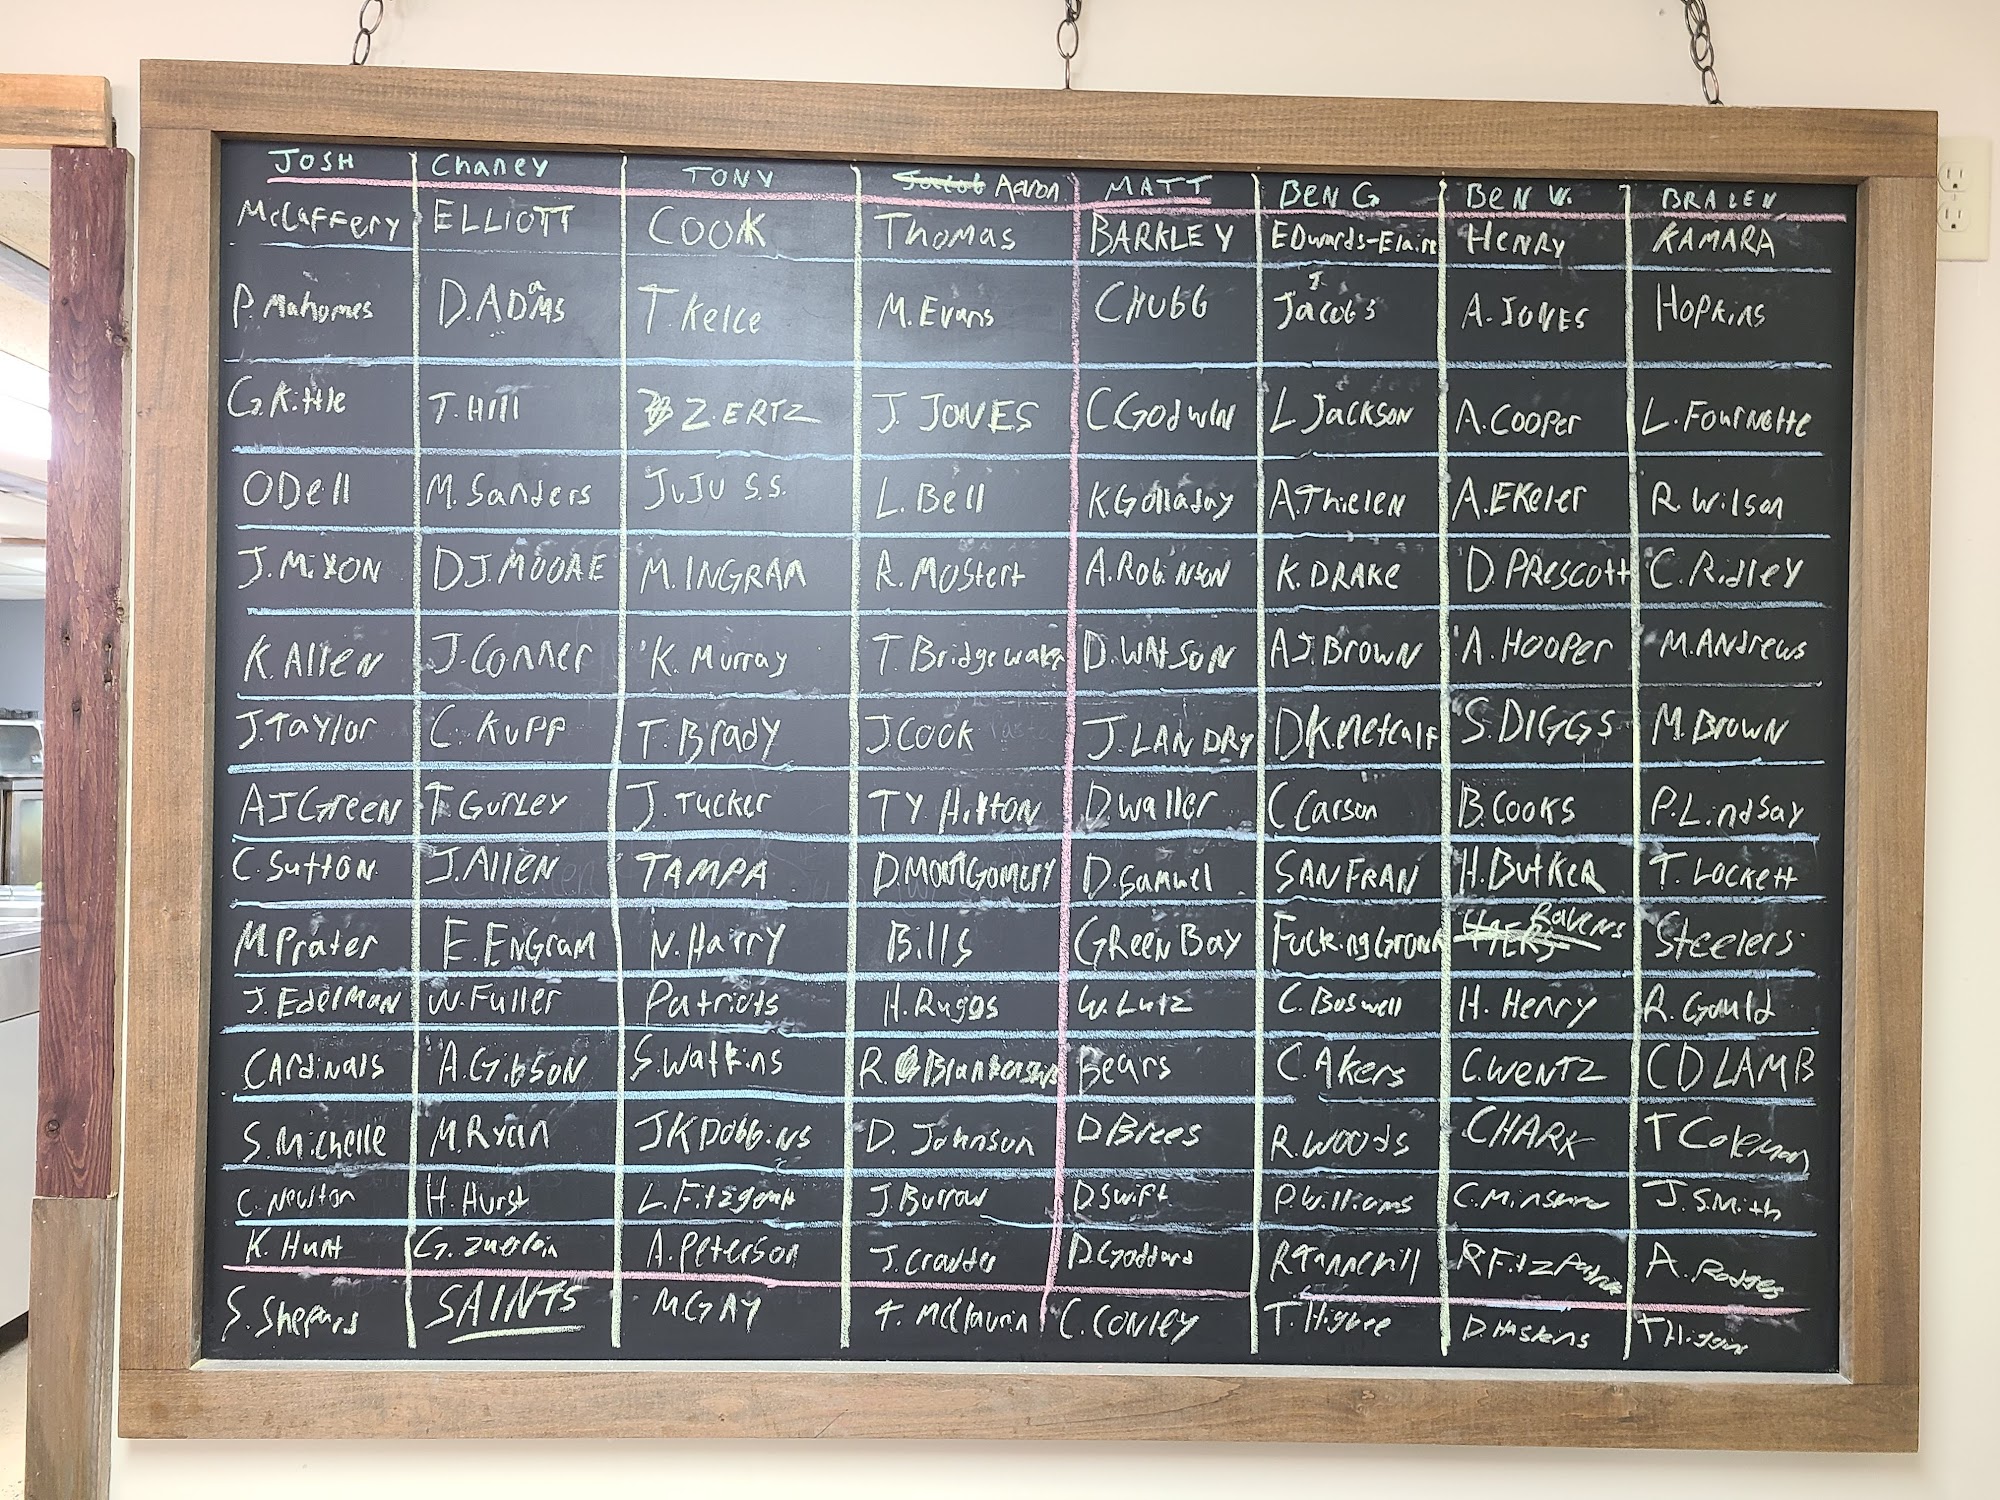 JOSH Chaney TONY Jacob Aaron MATT BEN G BEN W. BRALEN
McCaffery ELLIOTT COOK Thomas BARKLEY EDwards-Elaire HENRY KAMARA
P. Mahomes D. ADaMS T. Kelce M. Evans CHUBB Jacobs A. JONES HOPKINS
G. Kittle T. Hill Z. ERTZ J. JONES C. Godwin L Jackson A. Cooper L. Fournette
ODell M. Sanders JuJu S.S. L. Bell K. Golladay A. Thielen A. EKeler R. Wilson
J. Mixon DJ. MOORE M. INGRAM R. Mostert A. Robinson K. DRAKE D. PRescott C. Ridley
K. Allen J. Conner K. Murray T. Bridgewater D. WATSON AJ. BROWN A. HOOPER M. Andrews
J. Taylor C. Kupp T. Brady J. COOK J. LANDRY DK. Metcalf S. DIGGS M. BROWN
AJ Green T. Gurley J. Tucker TY Hilton D. Waller C Carson B. COOKS P. Lindsay
C. Sutton J. Allen TAMPA D. MONTGOMERY D. Samuel SAN FRAN H. BUTKER T. LOCKETT
M. Prater E. ENGRAM N. Harry Bills GREEN BAY Fucking Gronk Ravens Steelers
J. Edelman W. Fuller Patriots H. Ruggs W. Lutz C. Boswell H. Henry R. Gould
CArdinals A. Gibson S. Watkins R. Blankenship Bears C. Akers C. WENTZ CD LAMB
S. Michelle M. Ryan JK Dobbins D. Johnson D Brees R. WOODS CHARK T Coleman
C. Newton H. Hurst L. Fitzgerald J. Burrow D. Swift P. Williams C. Minshew J. Smith
K. Hunt G. Zuerlein A. Peterson J. Crowder D. Goddard R Tannehill R Fitzpatrick A. Rodgers
S. Shepard SAINTS M. GAY T. McClaurin C. CONLEY T. Higbee D. Haskins